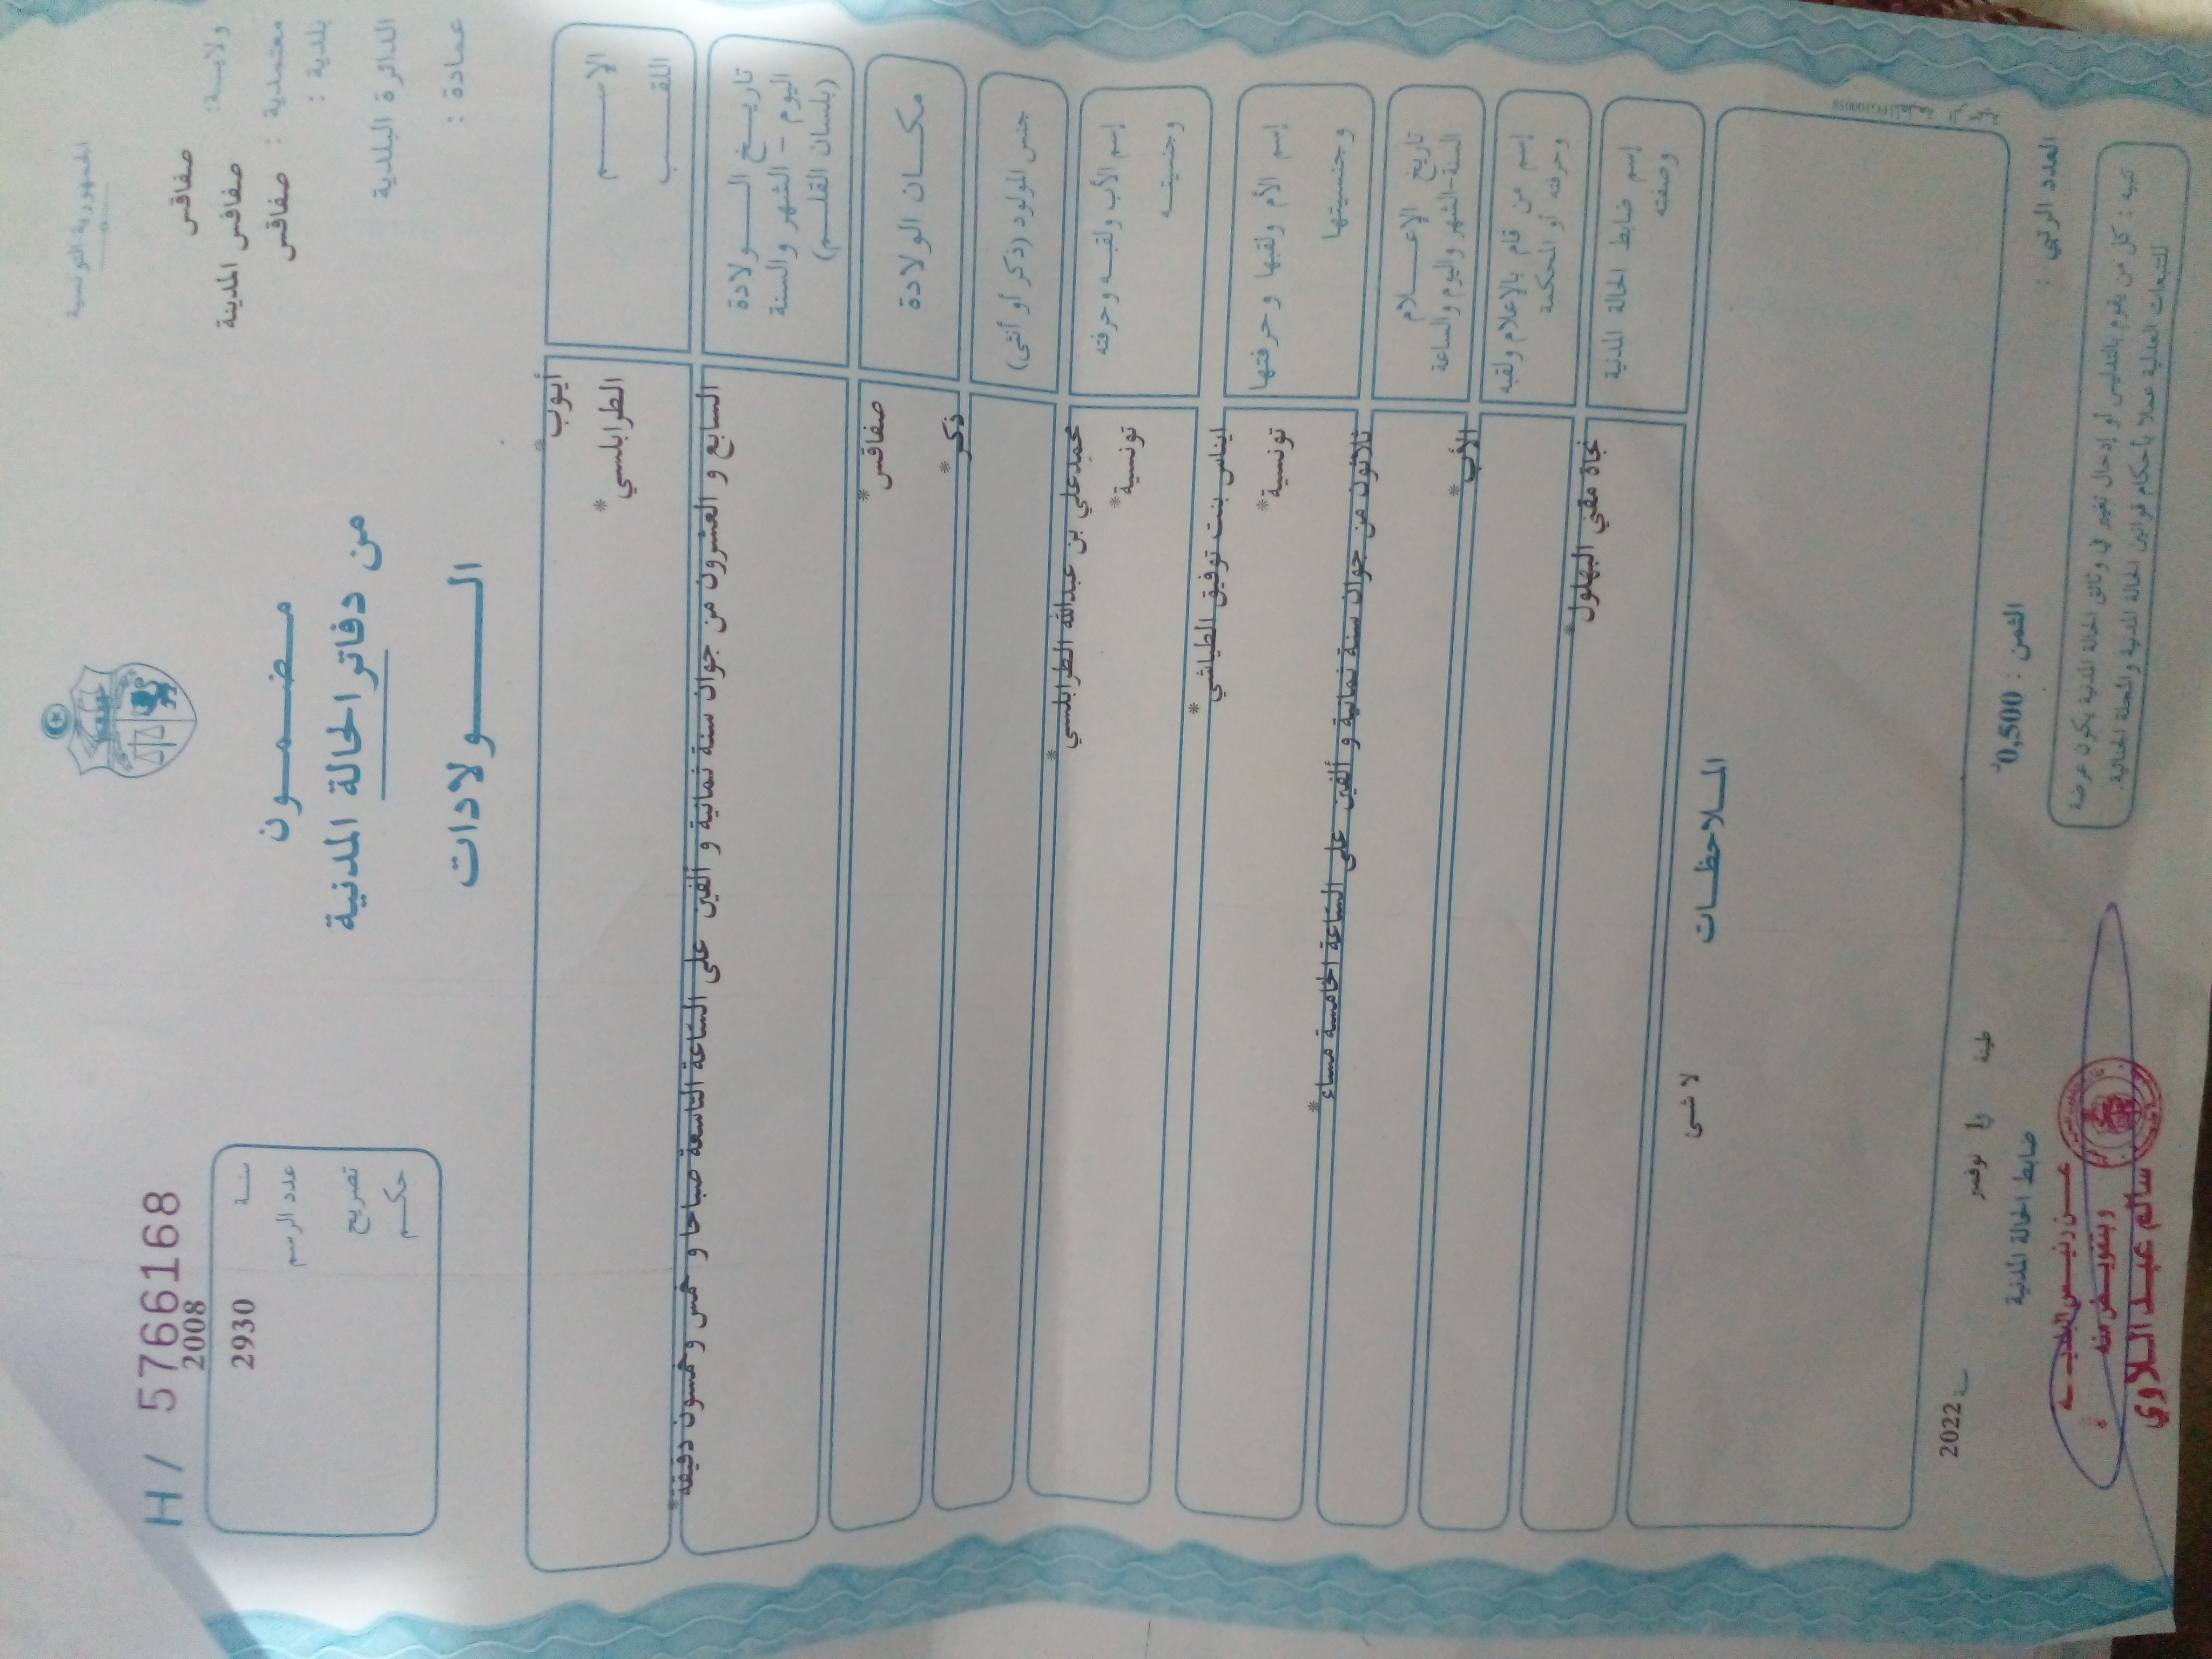 الجمهورية التونسية
ولاية: صفاقس
معتمدية : صفاقس المدينة
بلدية : صفاقس
الدائرة البلدية
عمادة :
مضمون
من دفاتر الحالة المدنية
الولادات
H / 5766168
سنة 2008
عدد الرسم 2930
تصريح
حكم
الاسم أيوب*
اللقب الطرابلسي*
تاريخ الولادة السابع و العشرون من جوان سنة ثمانية و ألفين على الساعة التاسعة صباحا و خمس وخمسون دقيقة*
اليوم - الشهر والسنة
(بلسان القلم)
مكان الولادة صفاقس*
جنس المولود (ذكر أو أنثى) ذكر*
إسم الأب ولقبه وحرفته محمدعلي بن عبدالله الطرابلسي*
وجنسيته تونسية*
إسم الأم ولقبها وحرفتها ايناس بنت توفيق الطياشي*
وجنسيتها تونسية*
تاريخ الإعلام ثلاثون من جوان سنة ثمانية و ألفين على الساعة الخامسة مساء*
السنة-الشهر واليوم والساعة
إسم من قام بالإعلام ولقبه الأب*
وحرفته أو المحكمة
إسم ضابط الحالة المدنية نجاة مقني البهلول*
وصفته
الملاحظات
لا شى
طينة في نوفمبر سنة 2022
العدد الرتبي :
الثمن : 0,500د
ضابط الحالة المدنية
تنبيه : كل من يقوم بالتدليس أو إدخال تغيير في وثائق الحالة المدنية يكون عرضة
للتتبعات العدلية عملا بأحكام قوانين الحالة المدنية والمجلة الجنائية.
عن رئيس البلدية
وبتفويض منه
سالم عبد اللاوي